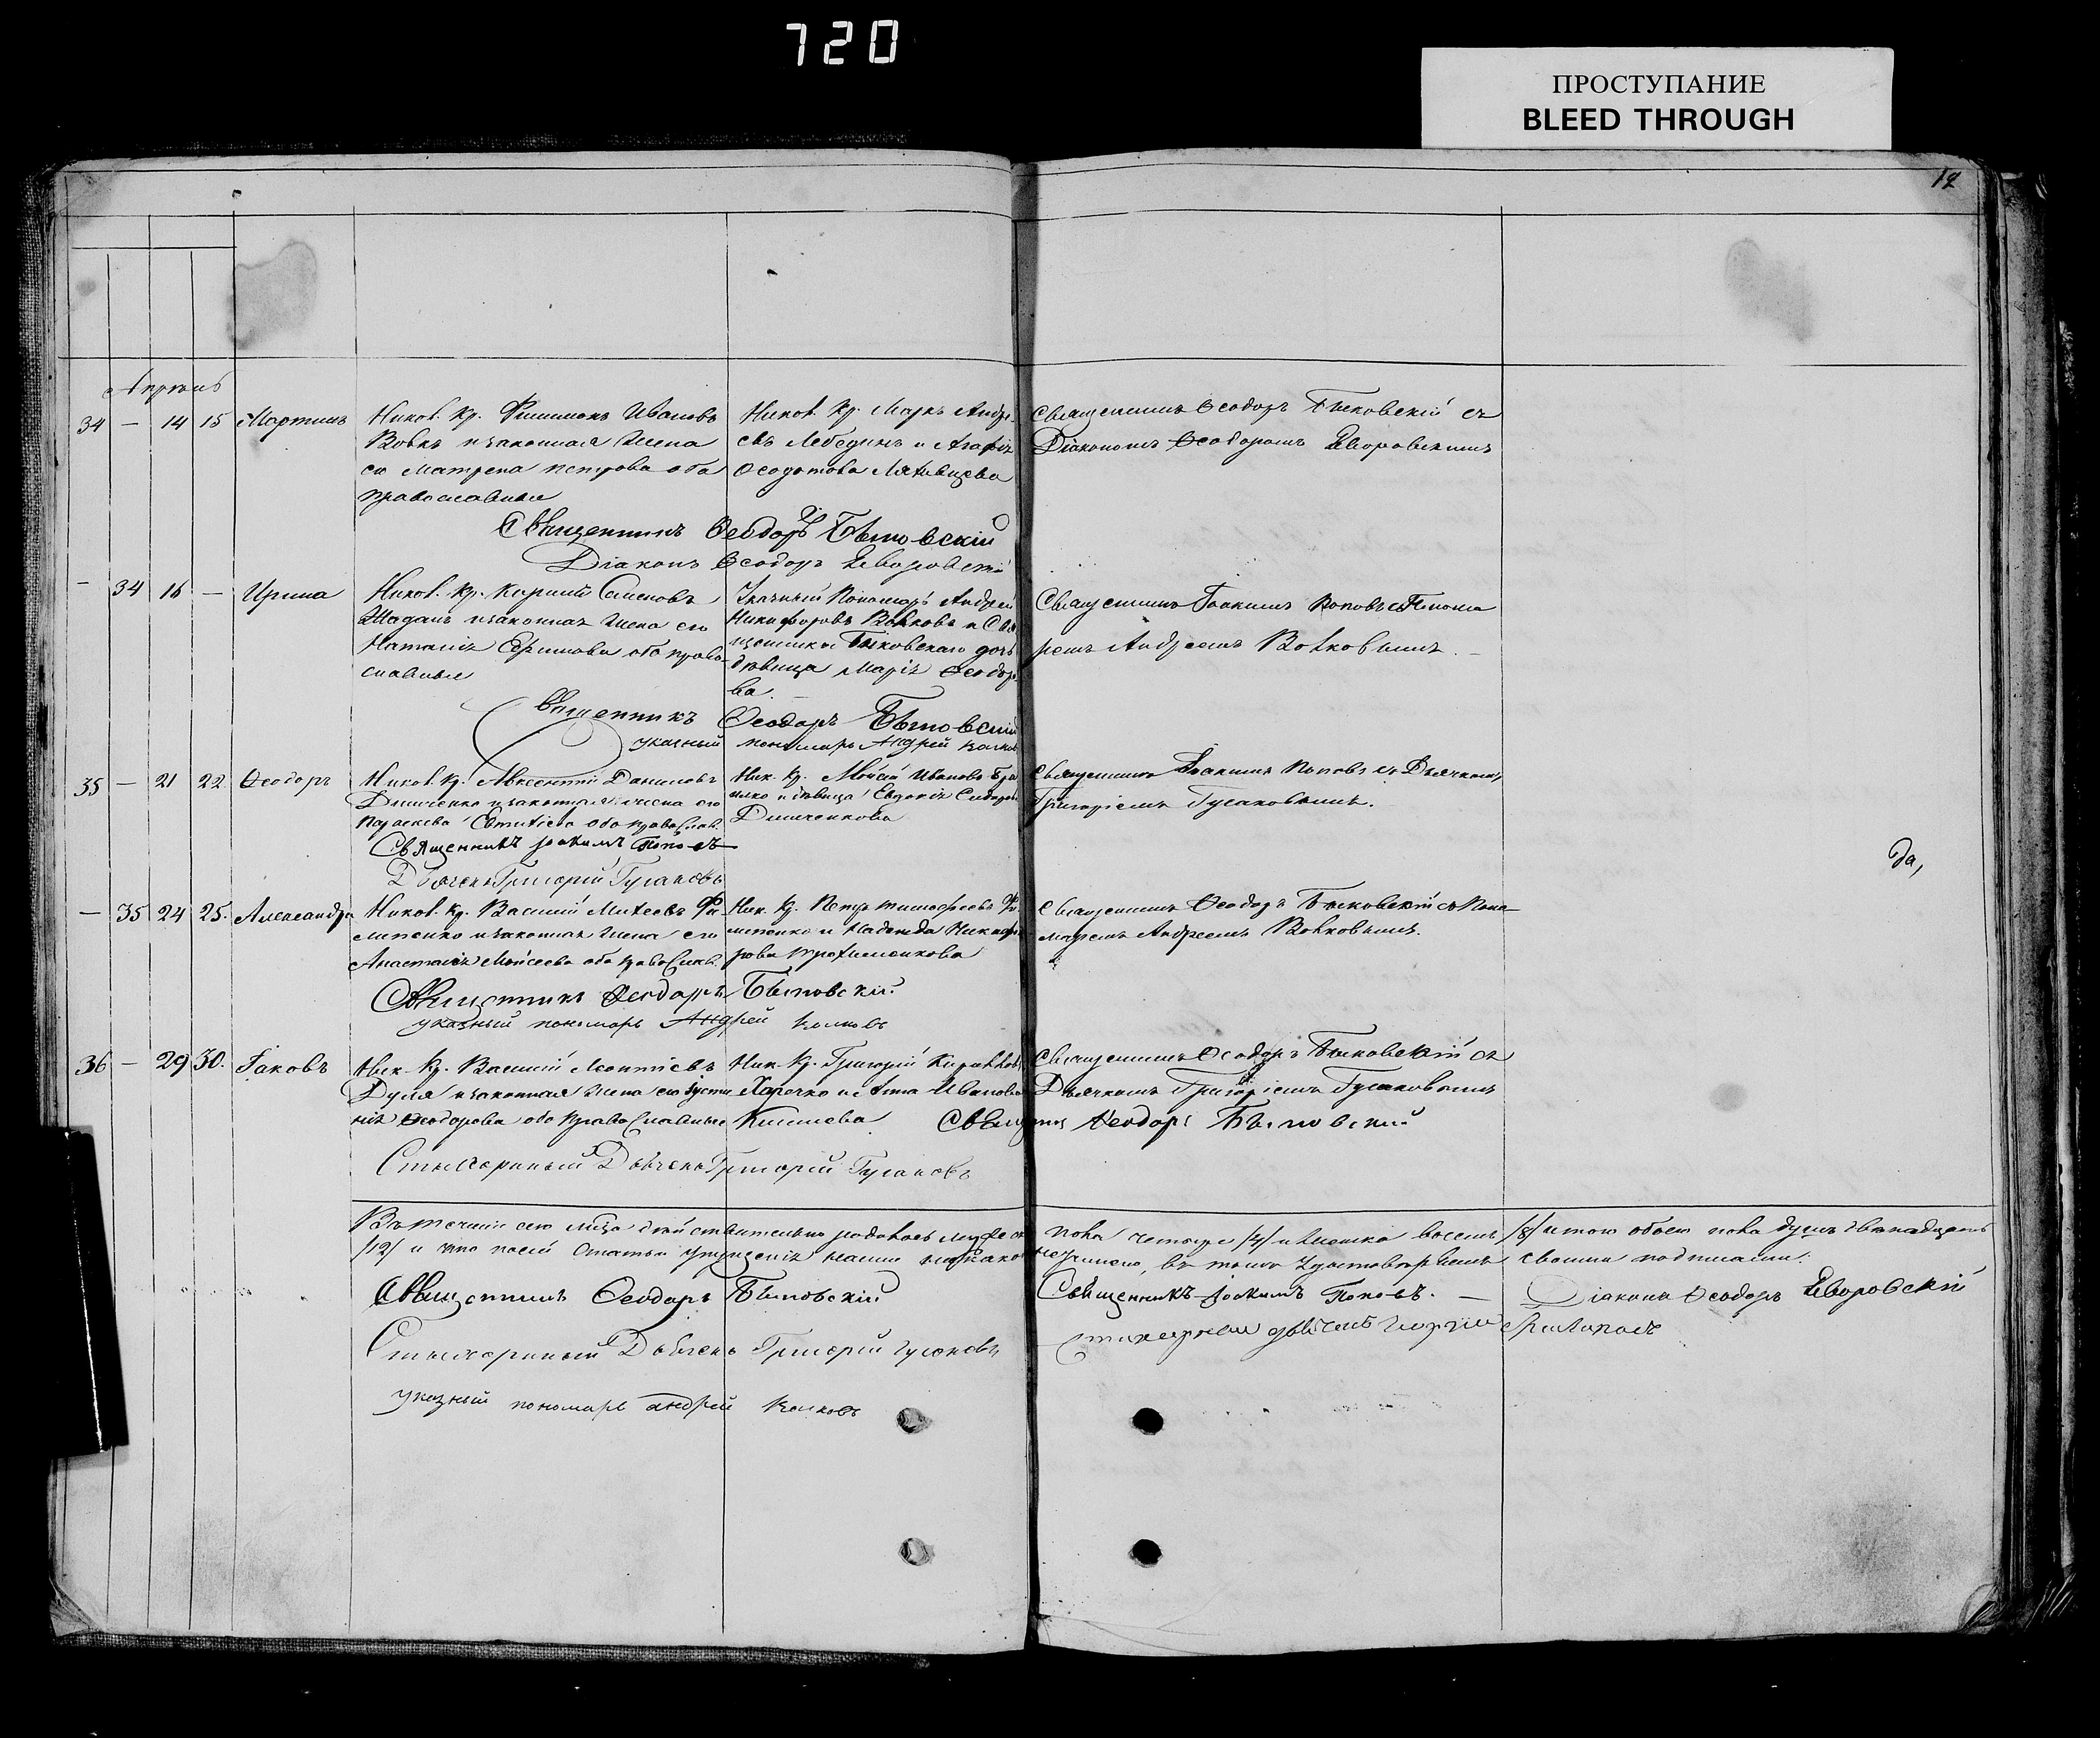 720
ПРОСТУПАНИЕ
BLEED THROUGH
12
Апрель
34 — 14 15 Мартинъ
Никол. Кр. Филимонъ Ивановъ
Вовкъ и законная жена
его Матрена Петрова оба
православные
Никол. Кр. Маркъ Андре-
евъ Лебединъ и Агафія
Ѳедотова
Священникъ Ѳеодоръ Быковскій съ
Діакономъ Ѳеодоромъ Яворовскимъ
Священникъ Ѳеодоръ Быковскій
Діаконъ Ѳеодоръ Яворовскій
— 34 16 — Ирина
Никол. Кр. Карпій Семеновъ
Шаданъ и законная жена его
Наталія Ефимова оба право-
славные
Указный Пономарь Андрей
Никифоровъ Волковъ и Свя-
щенника Быковскаго дочь
дѣвица Марія Ѳеодоро-
ва.
Священникъ Іоакимъ Поповъ съ Понома
ремъ Андреемъ Волковымъ. —
Священникъ Ѳеодоръ Быковскій
указный пономарь Андрей Волковъ
35 — 21 22 Ѳеодоръ
Никол. Кр. Авксентій Даниловъ
Дниченко и законная жена его
Параскева оба православ.
Ник. Кр. Мойсій Ивановъ
и дѣвица Евдокія Сидорова
Дниченкова
Священникъ Іоакимъ Поповъ съ Дьячкомъ
Григоріемъ Гусаковымъ.
Священникъ Іоакимъ Поповъ
Дьячекъ Григорій Гусаковъ
да,
— 35 24 25. Александра
Никол. Кр. Василій Михеевъ Фи-
липенко и законная жена его
Анастасія Мойсеева оба православ.
Ник. Кр. Петръ Тимофеевъ Фи-
липенко и Надежда Никифо-
рова Трохименкова
Священникъ Ѳеодоръ Быковскій съ Поно-
маремъ Андреемъ Волковымъ.
Священникъ Ѳеодоръ Быковскій.
указный пономарь Андрей Волковъ
36 — 29 30. Іаковъ
Ник. Кр. Василій Леонтіевъ
Дуля и законная жена его Іусти
нія Ѳеодорова оба православные
Ник. Кр. Григорій Кирилловъ
Харечко и Анна Иванова
Кислева
Священникъ Ѳеодоръ Быковскій съ
Дьячкомъ Григоріемъ Гусаковымъ
Священникъ Ѳеодоръ Быковскій
Стихарный Дьячекъ Григорій Гусаковъ
Въ теченіи сего мѣсяца дѣйствительно родилось мужеска пола четыре /4/ и женска восемь /8/ итого обоего пола душъ двенадцать
/12/ и что посей статьи упущенія нами никакого неучинено, въ томъ удостовѣряемъ своими подписами:
Священникъ Ѳеодоръ Быковскій
Священникъ Іоакимъ Поповъ. —
Діаконъ Ѳеодоръ Яворовскій
Стихарный Дьячекъ Григорій Гусаковъ
Стихарный дьячекъ Георгій
указный пономарь Андрей Волковъ